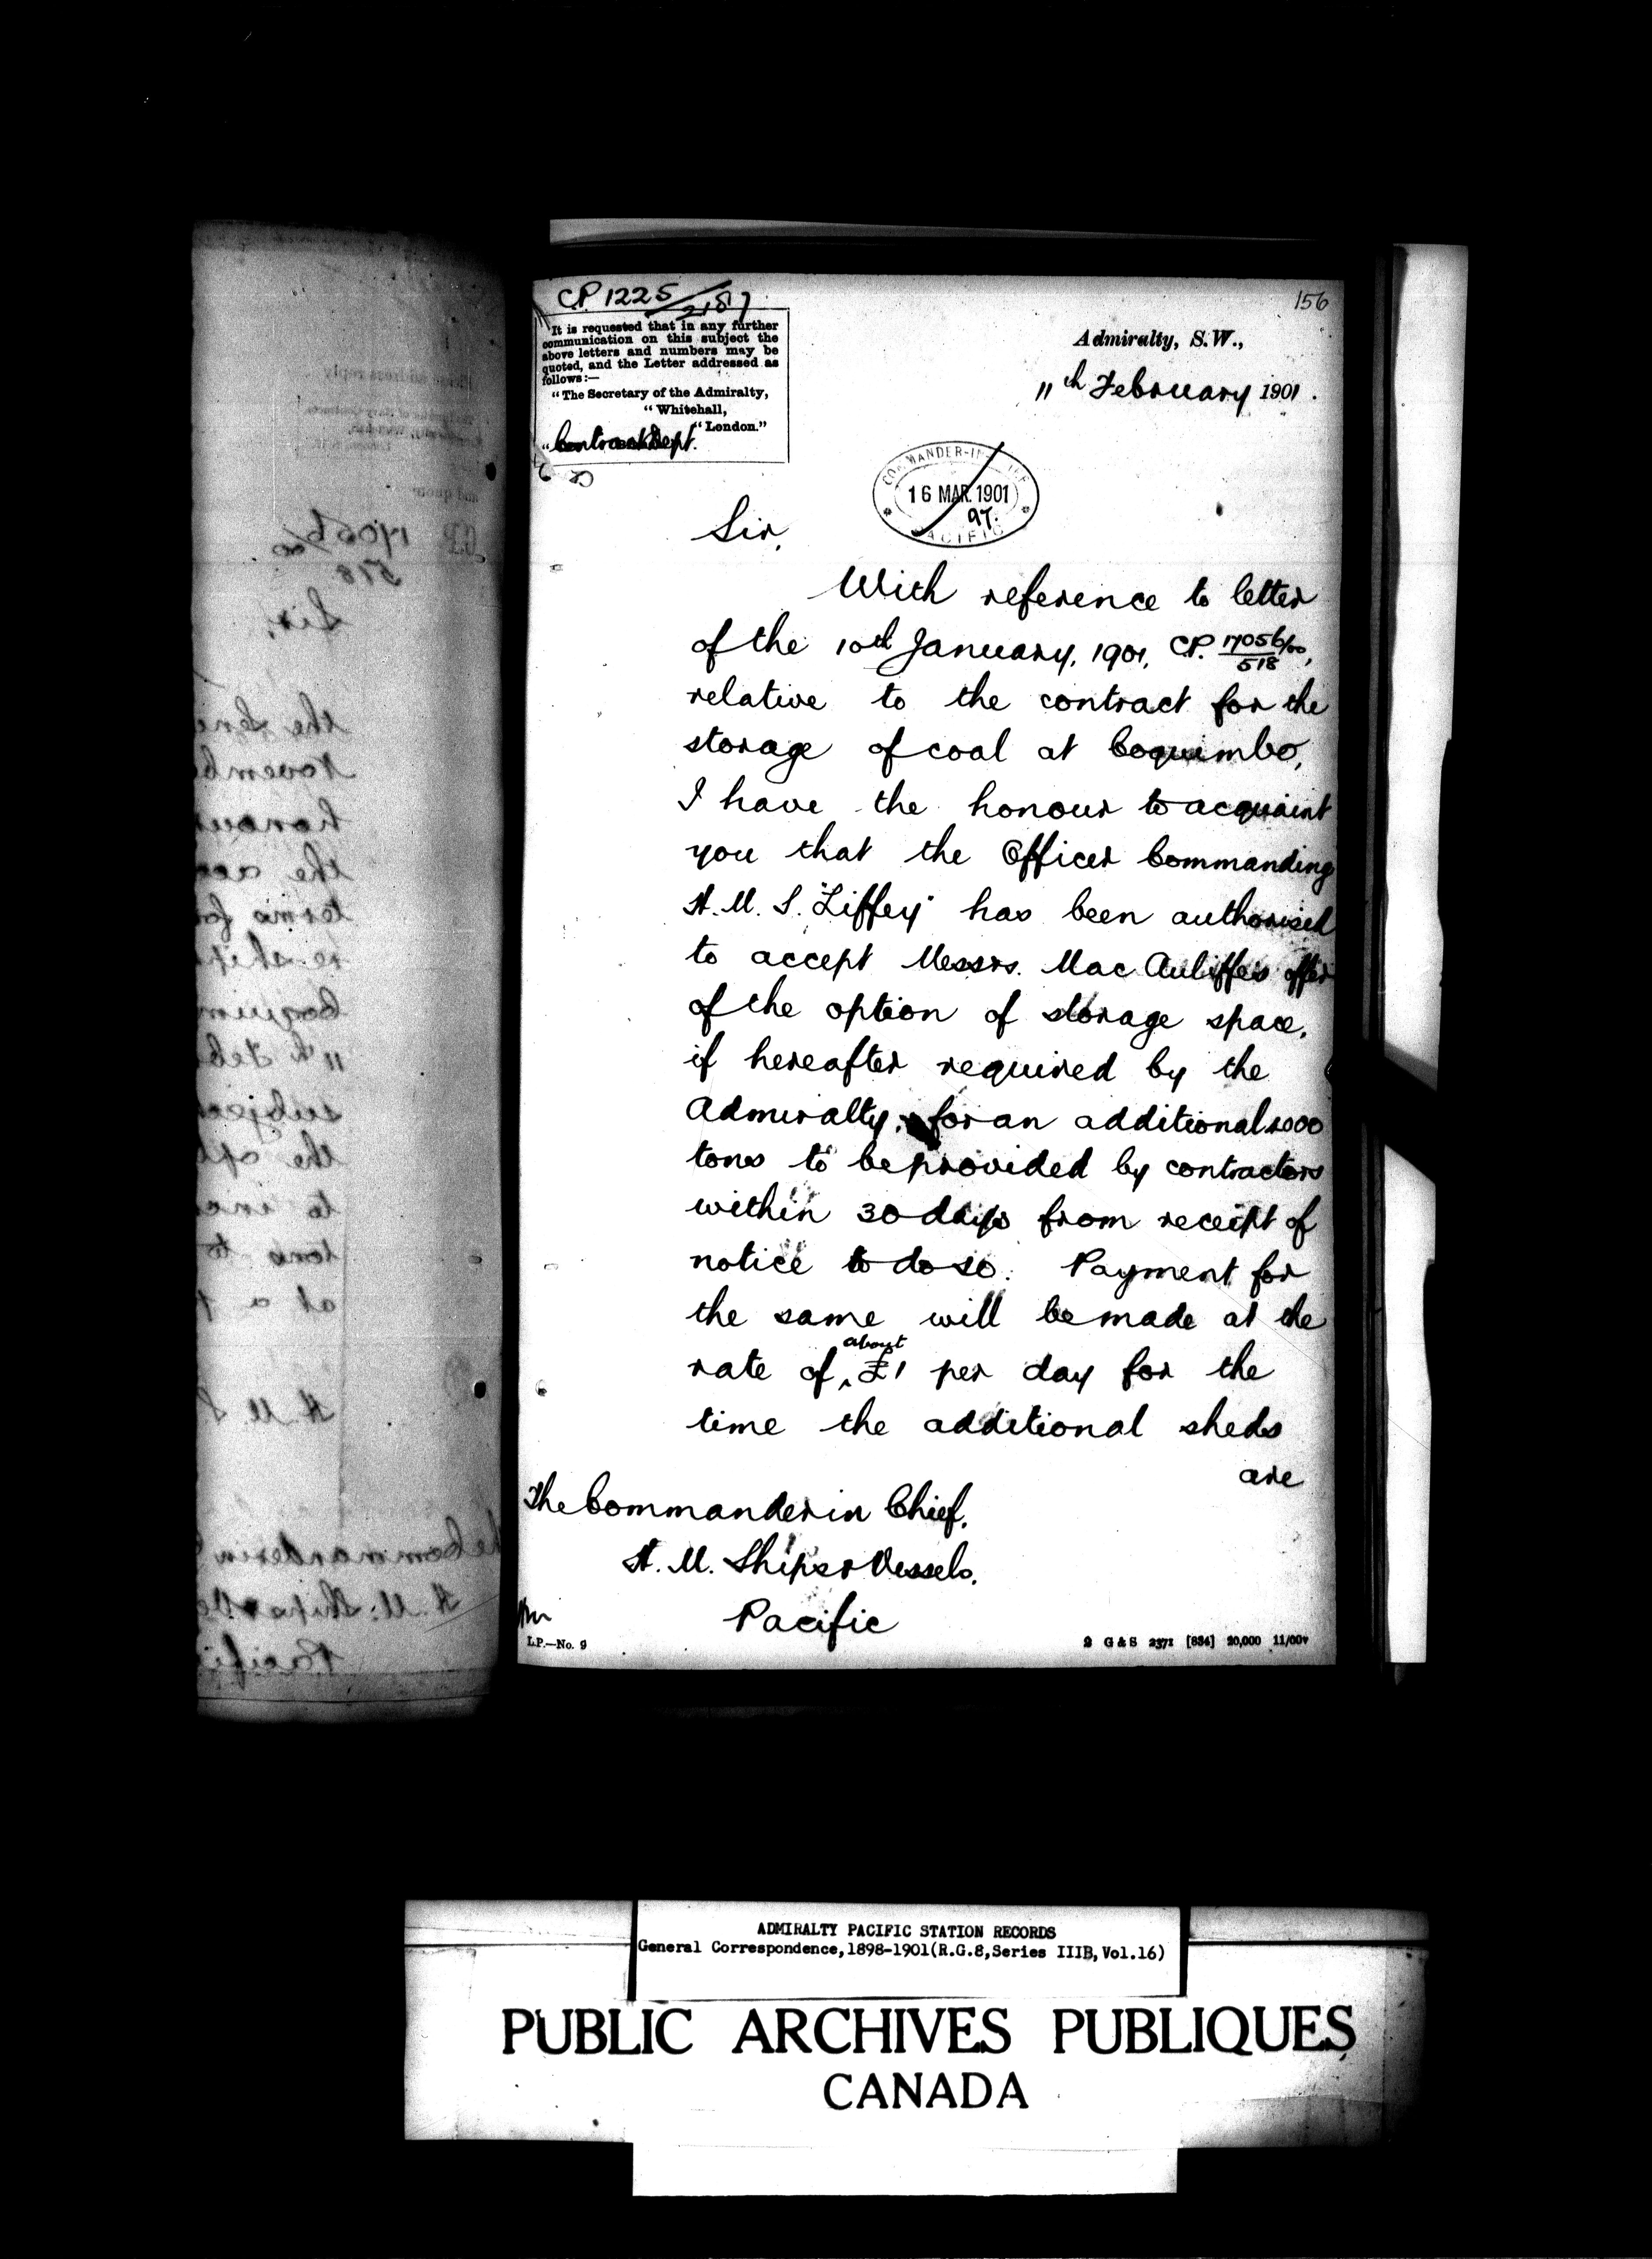 CP 1225/
It is requested that in any further
communication on this subject the
above letters and numbers may be
quoted, and the Letter addressed as
follows:—
"The Secretary of the Admiralty,
"Whitehall,
"London."
"Contract Dept.
156
Admiralty, S.W.,
11th February 1901.
COMMANDER-IN-CHIEF
16 MAR. 1901
97.
PACIFIC
Sir,
With reference to letter
of the 10th January, 1901, CP. 17056/00/518,
relative to the contract for the
storage of coal at Coquimbo,
I have the honour to acquaint
you that the Officer Commanding
H.M.S. "Liffey" has been authorised
to accept Messrs. Mac Auliffe's offer
of the option of storage space,
if hereafter required by the
Admiralty, for an additional 1000
tons to be provided by contractors
within 30 days from receipt of
notice to do so. Payment for
the same will be made at the
about
rate of £1 per day for the
time the additional sheds
are
The Commander in Chief,
H.M. Ships & Vessels,
Pacific
L.P.—No. 9
2 G & S 2371 [834] 20,000 11/00
ADMIRALTY PACIFIC STATION RECORDS
General Correspondence, 1898-1901 (R.G.8, Series IIIB, Vol.16)
PUBLIC ARCHIVES PUBLIQUES
CANADA